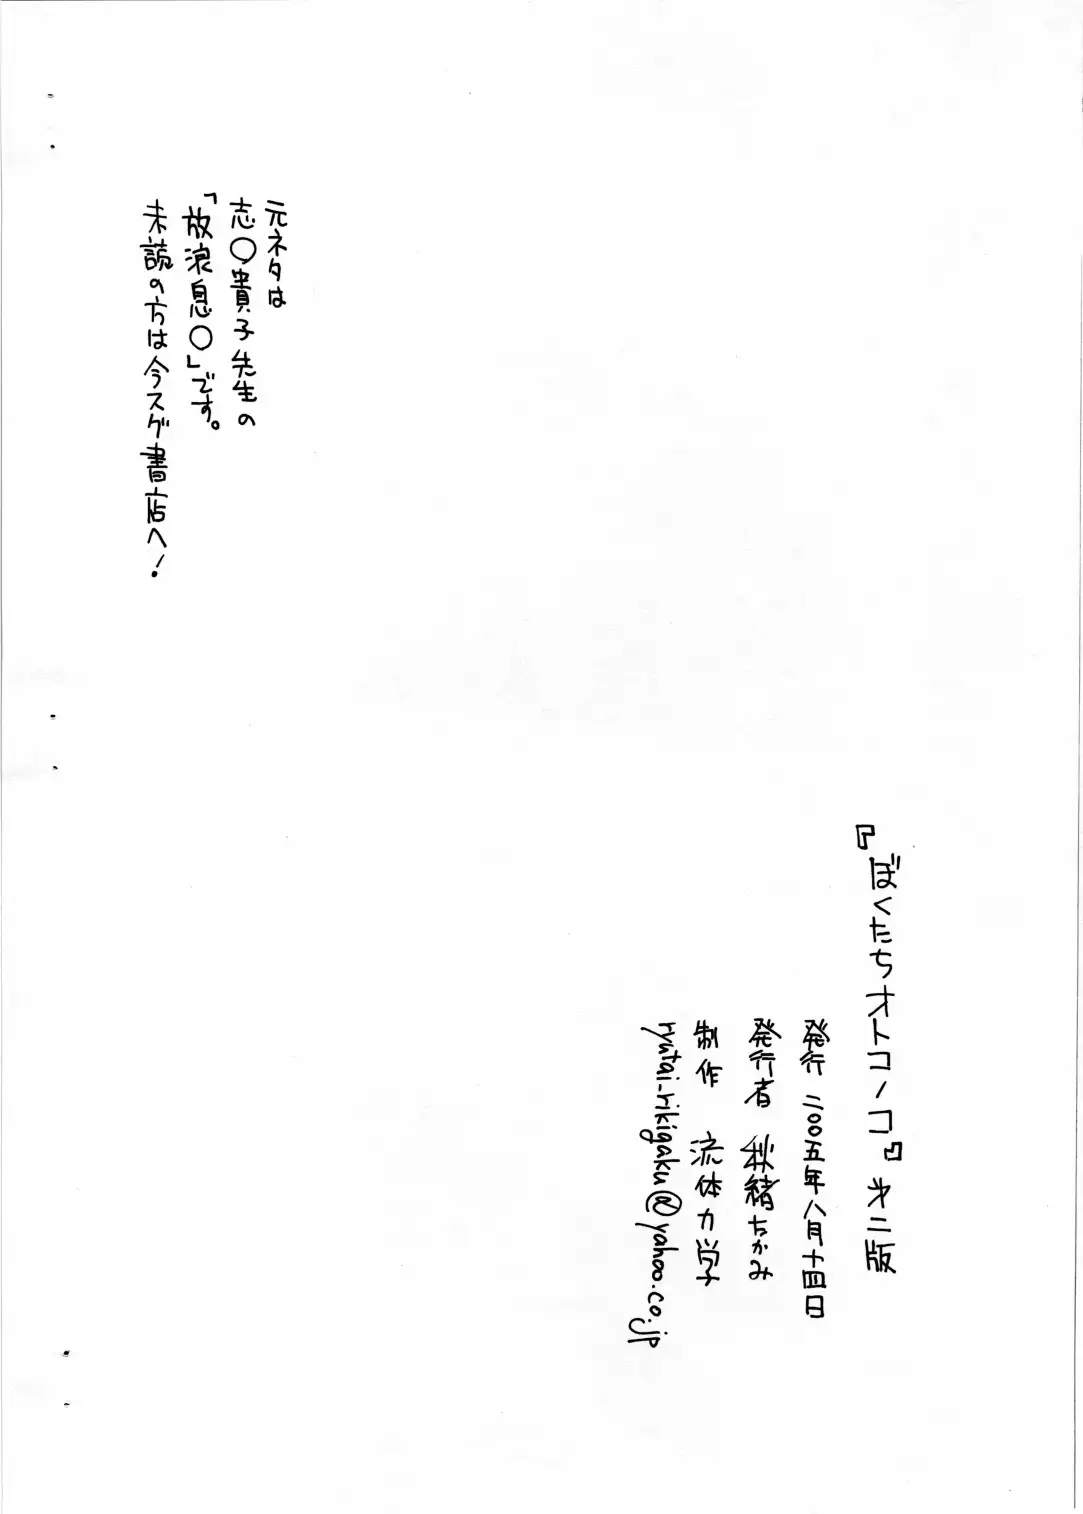 『ぼくたちオトコノコ』第二版
発行 二〇〇五年八月十四日
発行者 秋緒たかみ
制作 流体力学
ryutai_rikigaku@yahoo.co.jp
元ネタは
志〇貴子先生の
「放浪息〇」です。
未読の方は今スグ書店へ!